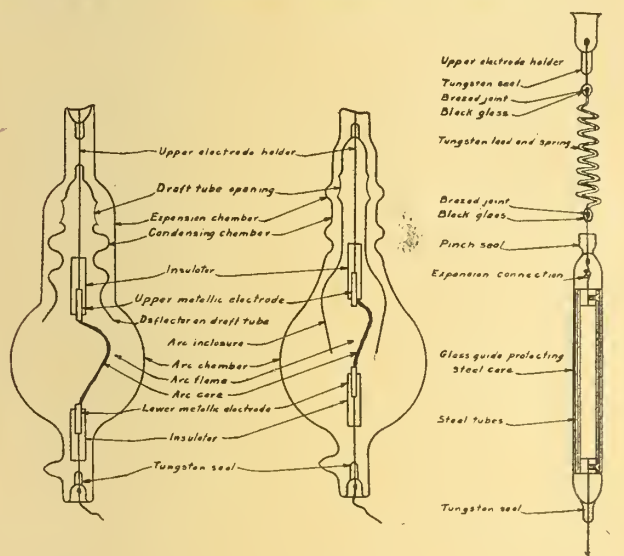 Upper electrode holder
Draft tube opening
Expansion chamber
Condensing chamber
Insulator
Upper metallic electrode
Deflector on draft tube
Arc inclosure
Arc chamber
Arc flame
Arc core
Lower metallic electrode
Insulator
Tungsten seal
Upper electrode holder
Tungsten seal
Brazed joint
Black glass
Tungsten lead and spring
Brazed joint
Black glass
Pinch seal
Expansion connection
Glass guide protecting
steel core
Steel tubes
Tungsten seal